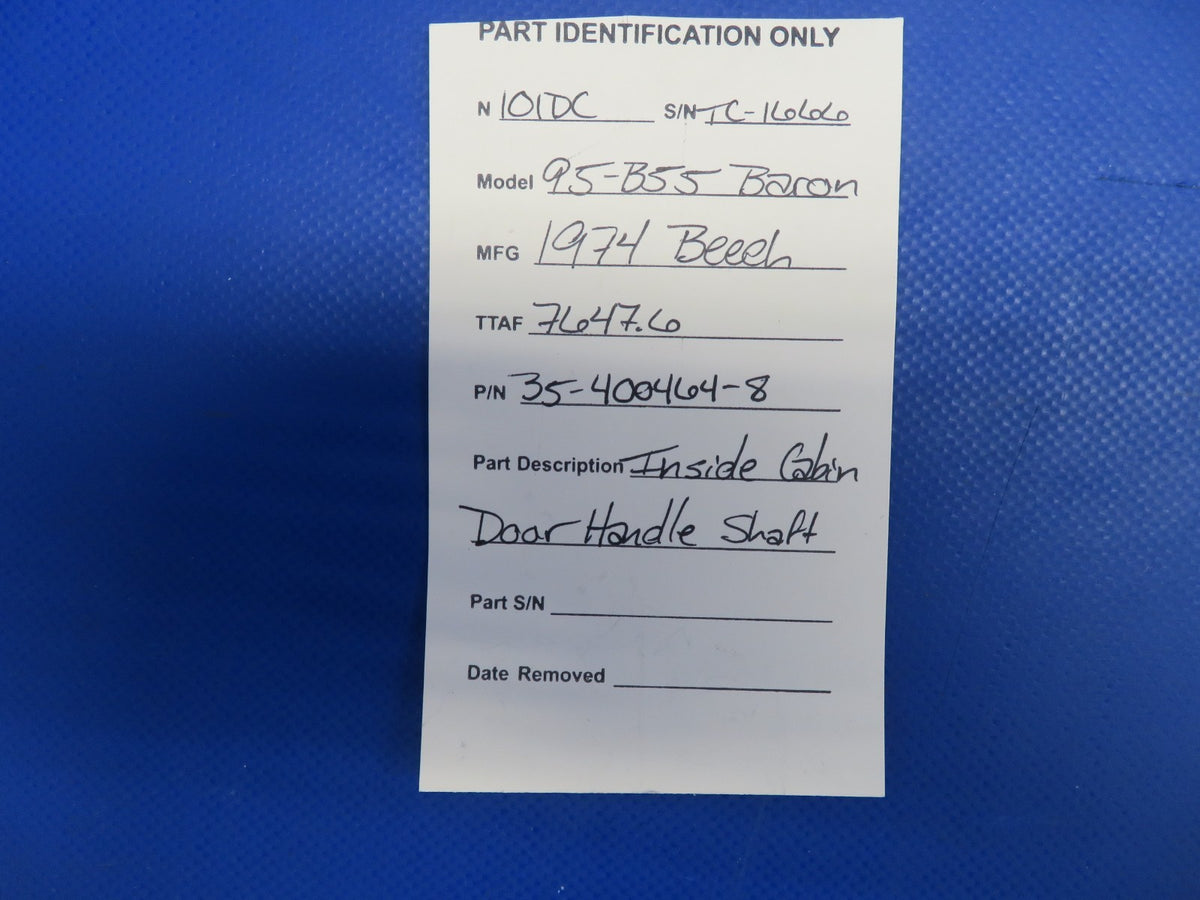 PART IDENTIFICATION ONLY
N 101DC S/N TC-1666
Model 95-B55 Baron
MFG 1974 Beech
TTAF 7647.6
P/N 35-400464-8
Part Description Inside Cabin
Door Handle Shaft
Part S/N
Date Removed